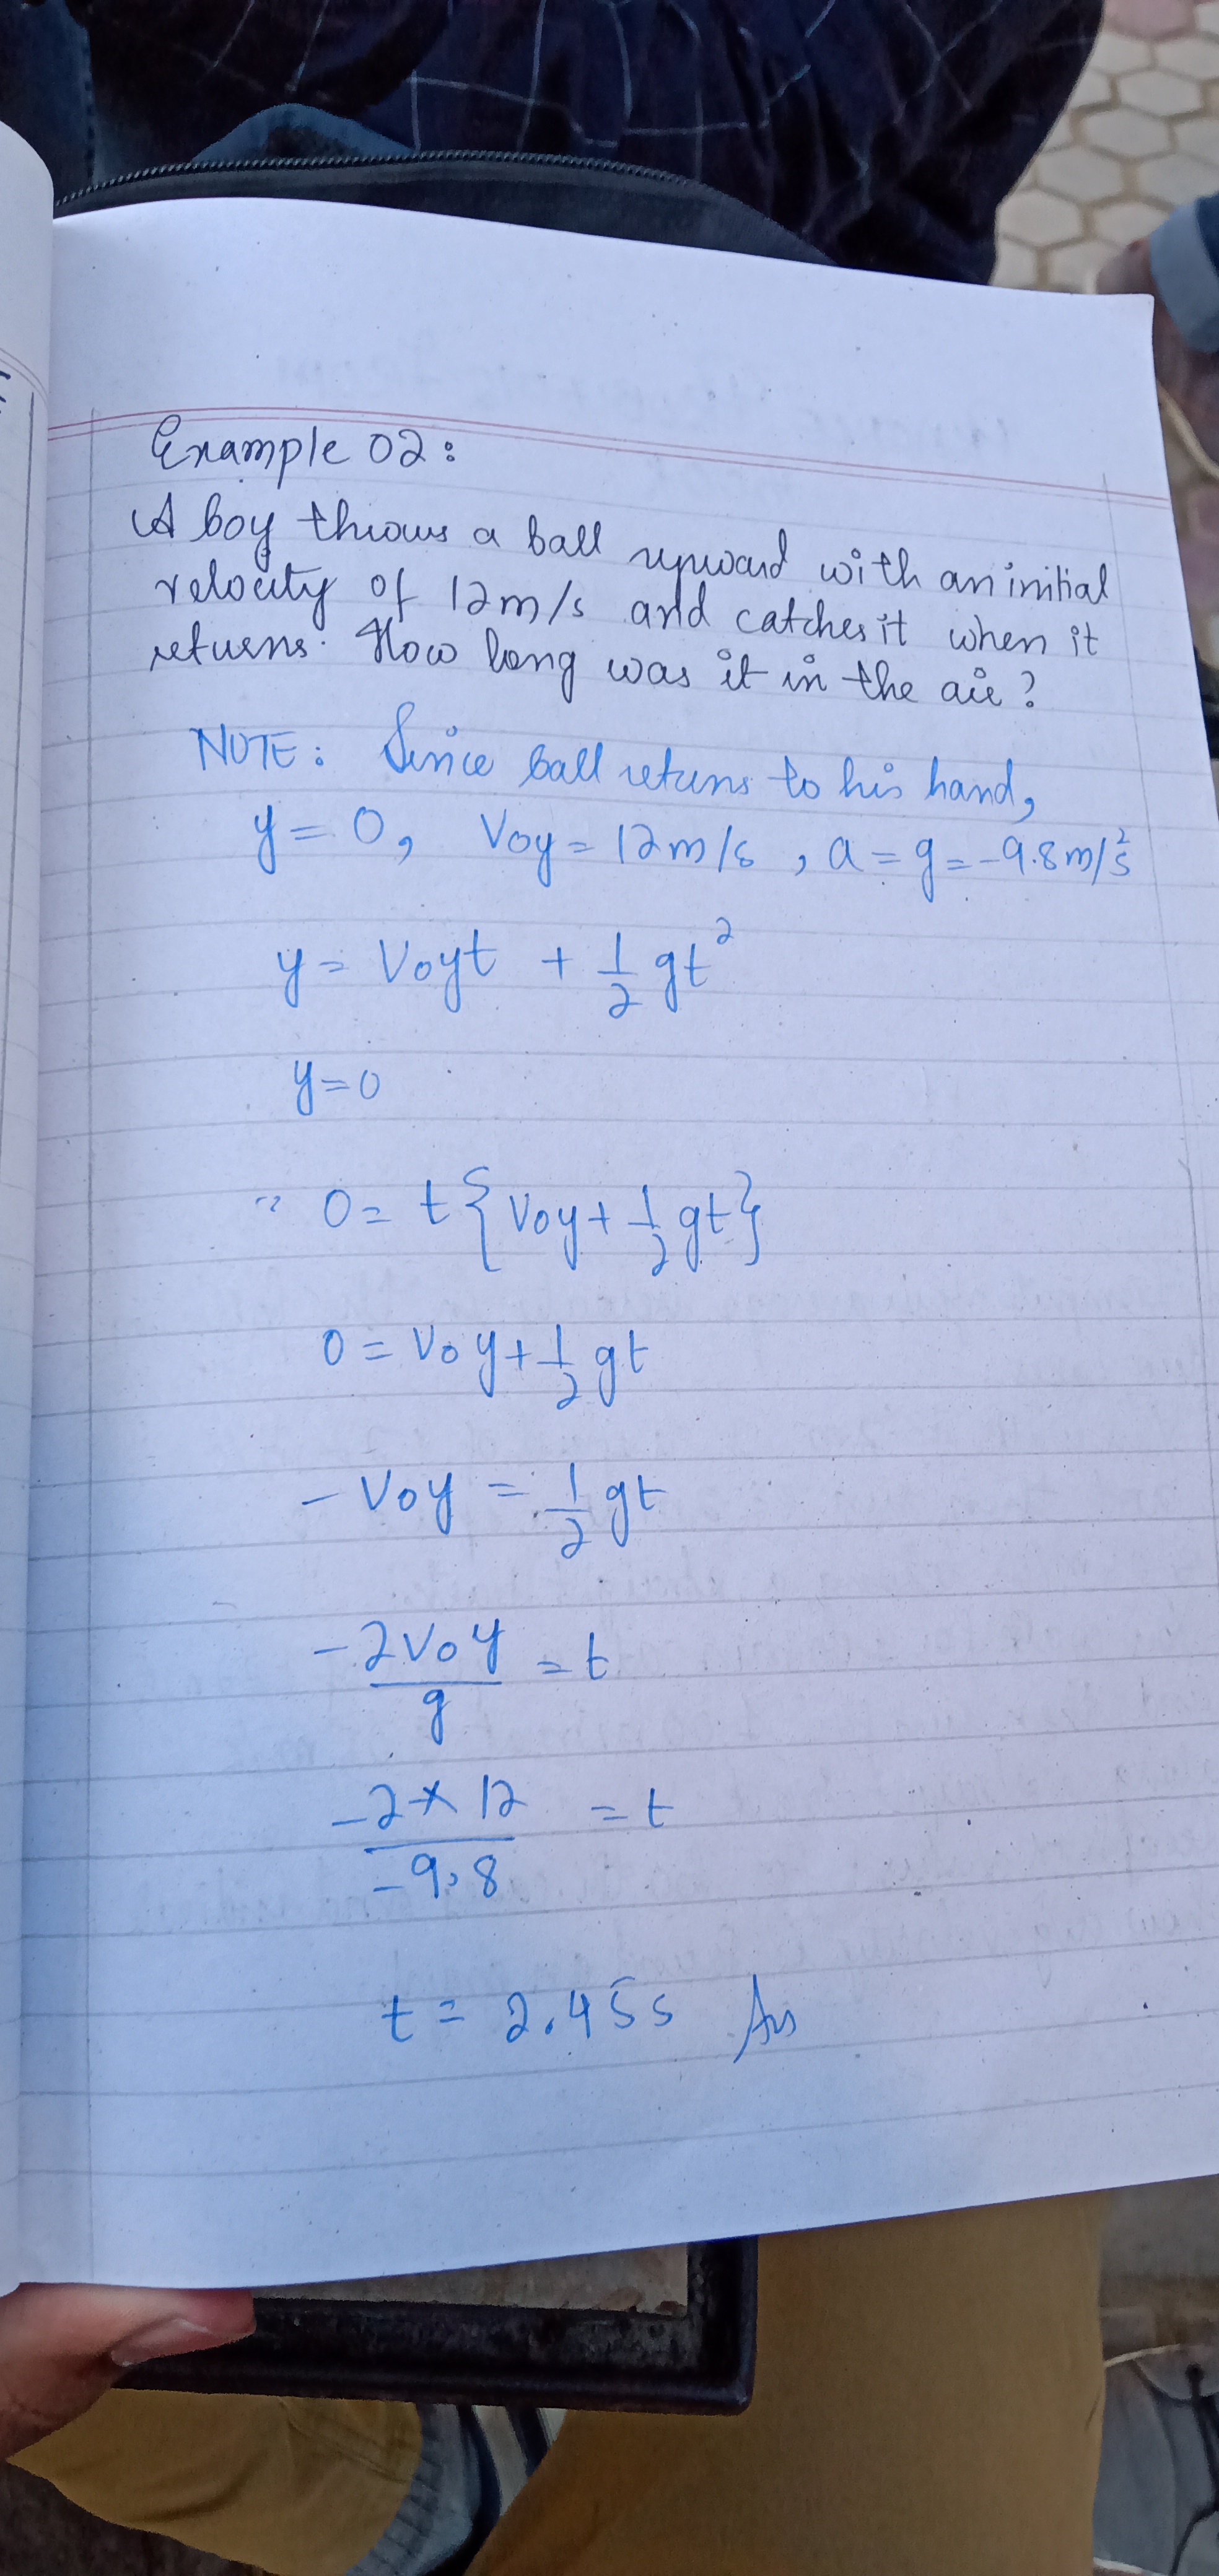 Example 02:
A boy throws a ball upward with an initial
velocity of 12m/s and catches it when it
returns. How long was it in the air?
NOTE: Since ball returns to his hand,
y = 0, Voy = 12m/s, a = g = -9.8m/s²
y = Voyt + 1/2 gt²
y=0
0 = t{Voy + 1/2 gt}
0 = Voy + 1/2 gt
- Voy = 1/2 gt
-2Voy/g = t
-2 × 12/-9.8 = t
t = 2.45s Ans